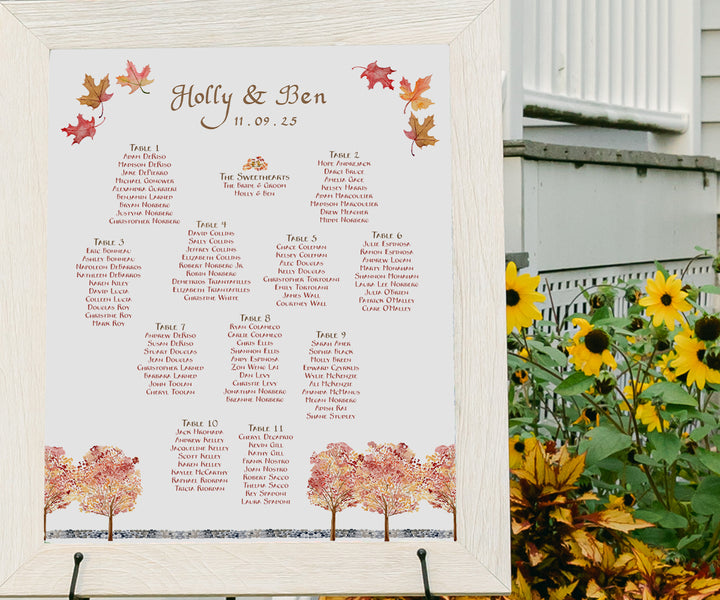 Holly & Ben
11.09.25
Table 1
Adam DeRiso
Madison DeRiso
Jake DePierro
Michael Gonower
Alexandra Gurrieri
Benjamin Larned
Bryan Norberg
Justyna Norberg
Christopher Norberg
The Sweethearts
The Bride & Groom
Holly & Ben
Table 2
Hope Andrejack
Darci Bruce
Amelia Gage
Kelsey Harris
Adam Marcoulier
Madison Marcoulier
Drew Meagher
Mindy Norberg
Table 3
Eric Bonneau
Ashley Bonneau
Napoleon DeBarros
Kathleen DeBarros
Karen Riley
David Lucia
Colleen Lucia
Douglas Roy
Christine Roy
Mark Roy
Table 4
David Collins
Sally Collins
Jeffrey Collins
Elizabeth Collins
Robert Norberg Jr
Robin Norberg
Demetrios Triantafilles
Elizabeth Triantafilles
Christine White
Table 5
Grace Coleman
Kelsey Coleman
Alec Douglas
Kelly Douglas
Christopher Tortolani
Emily Tortolani
James Wall
Courtney Wall
Table 6
Julie Espinosa
Ramon Espinosa
Andrew Logan
Marty Monahan
Shannon Monahan
Laura Lee Norberg
Julia O'Brien
Patrick O'Malley
Clare O'Malley
Table 7
Andrew DeRiso
Susan DeRiso
Stuart Douglas
Jean Douglas
Christopher Larned
Barbara Larned
John Toolan
Cheryl Toolan
Table 8
Ryan Colameco
Carlie Colameco
Chris Ellis
Shannon Ellis
Andy Espinosa
Zoh Weng Lai
Dan Levy
Christie Levy
Jonathan Norberg
Breanne Norberg
Table 9
Sarah Amer
Sophia Black
Molly Breen
Edward Gzyralis
Wylie McKenzie
Ali McKenzie
Amanda McManus
Megan Norberg
Adish Rai
Shane Studley
Table 10
Jack Hromada
Andrew Kelley
Jacqueline Kelley
Scott Kelley
Karen Kelley
Kaylee McCarthy
Raphael Riordan
Tricia Riordan
Table 11
Cheryl DiCaprio
Kevin Gill
Kathy Gill
Frank Nostro
Joan Nostro
Robert Sacco
Thelma Sacco
Rey Spadoni
Laura Spadoni